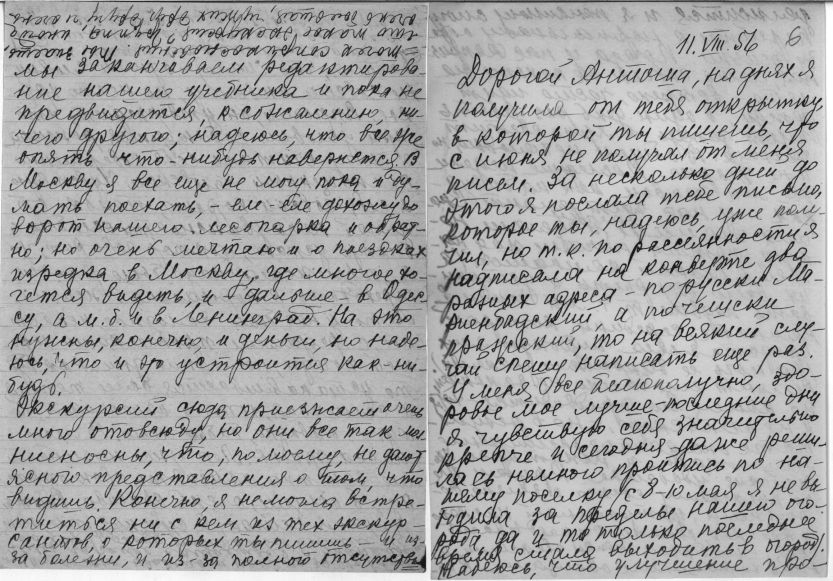 11.VIII.56 6
Дорогой Антоша, на днях я
получила от тебя открытку,
в которой ты пишешь, что
с июня не получал от меня
писем. За несколько дней до
этого я послала тебе письмо,
которое ты, надеюсь, уже полу-
чил, но т.к. по рассеянности я
надписала на конверте два
разных адреса – по русски Ма-
риенбадский, а по чешски
пражский, то на всякий слу-
чай спешу написать еще раз.
У меня все благополучно, здо-
ровье мое лучше – последние дни
я чувствую себя значительно
крепче и сегодня даже реши-
лась немного пройтись по на-
шему поселку (с 8-10 мая я не вы-
ходила за пределы нашего ого-
рода да и то только последнее
время стала выходить в огород).
Надеюсь, что улучшение про-
мы заканчиваем редактирова-
ние нашего учебника и пока не
предвидится, к сожалению, ни-
чего другого; надеюсь, что все же
опять что-нибудь навернется. В
Москву я все еще не могу пока и ду-
мать поехать, – еле-еле дохожу до
ворот нашего лесопарка и обрат-
но; но очень мечтаю и о поездках
изредка в Москву, где многое хо-
чется видеть, и дальше – в Одес-
су, а м.б. и в Ленинград. На это
нужны, конечно и деньги, но наде-
юсь, что и это устроится как-ни-
будь.
Экскурсий сюда приезжает очень
много отовсюду, но они все так мол-
ниеносны, что, по моему, не дают
ясного представления о том, что
видишь. Конечно, я не могла встре-
титься ни с кем из тех экскур-
сантов, о которых ты пишешь – и из-
за болезни, и из-за полного отсутствия